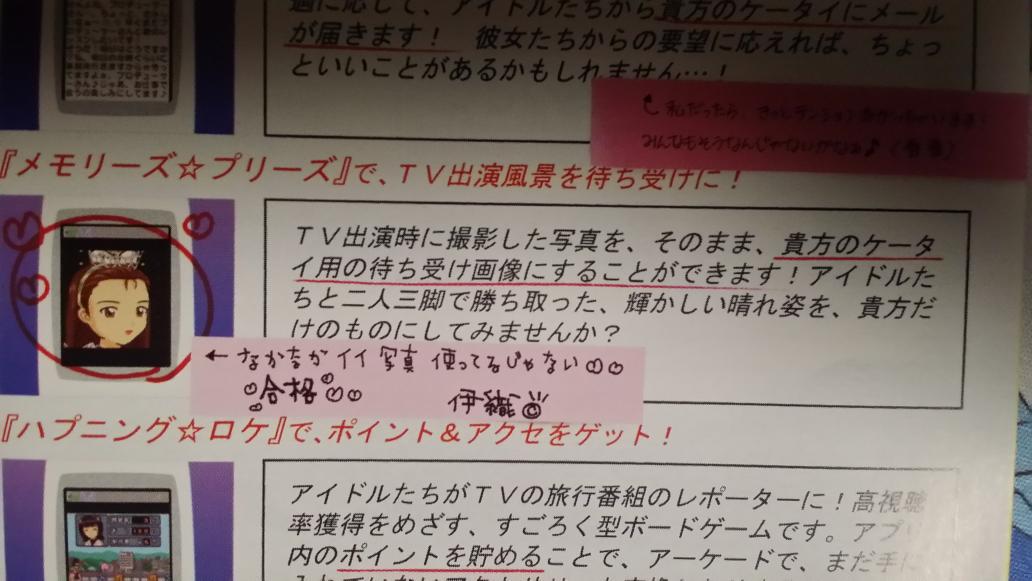 週に応じて、アイドルたちから貴方のケータイにメール
が届きます！　彼女たちからの要望に応えれば、ちょっ
といいことがあるかもしれません…！
私だったら、きっとテンション
みんなもそうなんじゃないかなぁ♪
『メモリーズ☆プリーズ』で、ＴＶ出演風景を待ち受けに！
ＴＶ出演時に撮影した写真を、そのまま、貴方のケータ
イ用の待ち受け画像にすることができます！アイドルた
ちと二人三脚で勝ち取った、輝かしい晴れ姿を、貴方だ
けのものにしてみませんか？
← なかなかイイ写真使ってるじゃない♡♡
合格
伊織
『ハプニング☆ロケ』で、ポイント＆アクセをゲット！
アイドルたちがＴＶの旅行番組のレポーターに！高視聴
率獲得をめざす、すごろく型ボードゲームです。アプリ
内のポイントを貯めることで、アーケードで、まだ手に